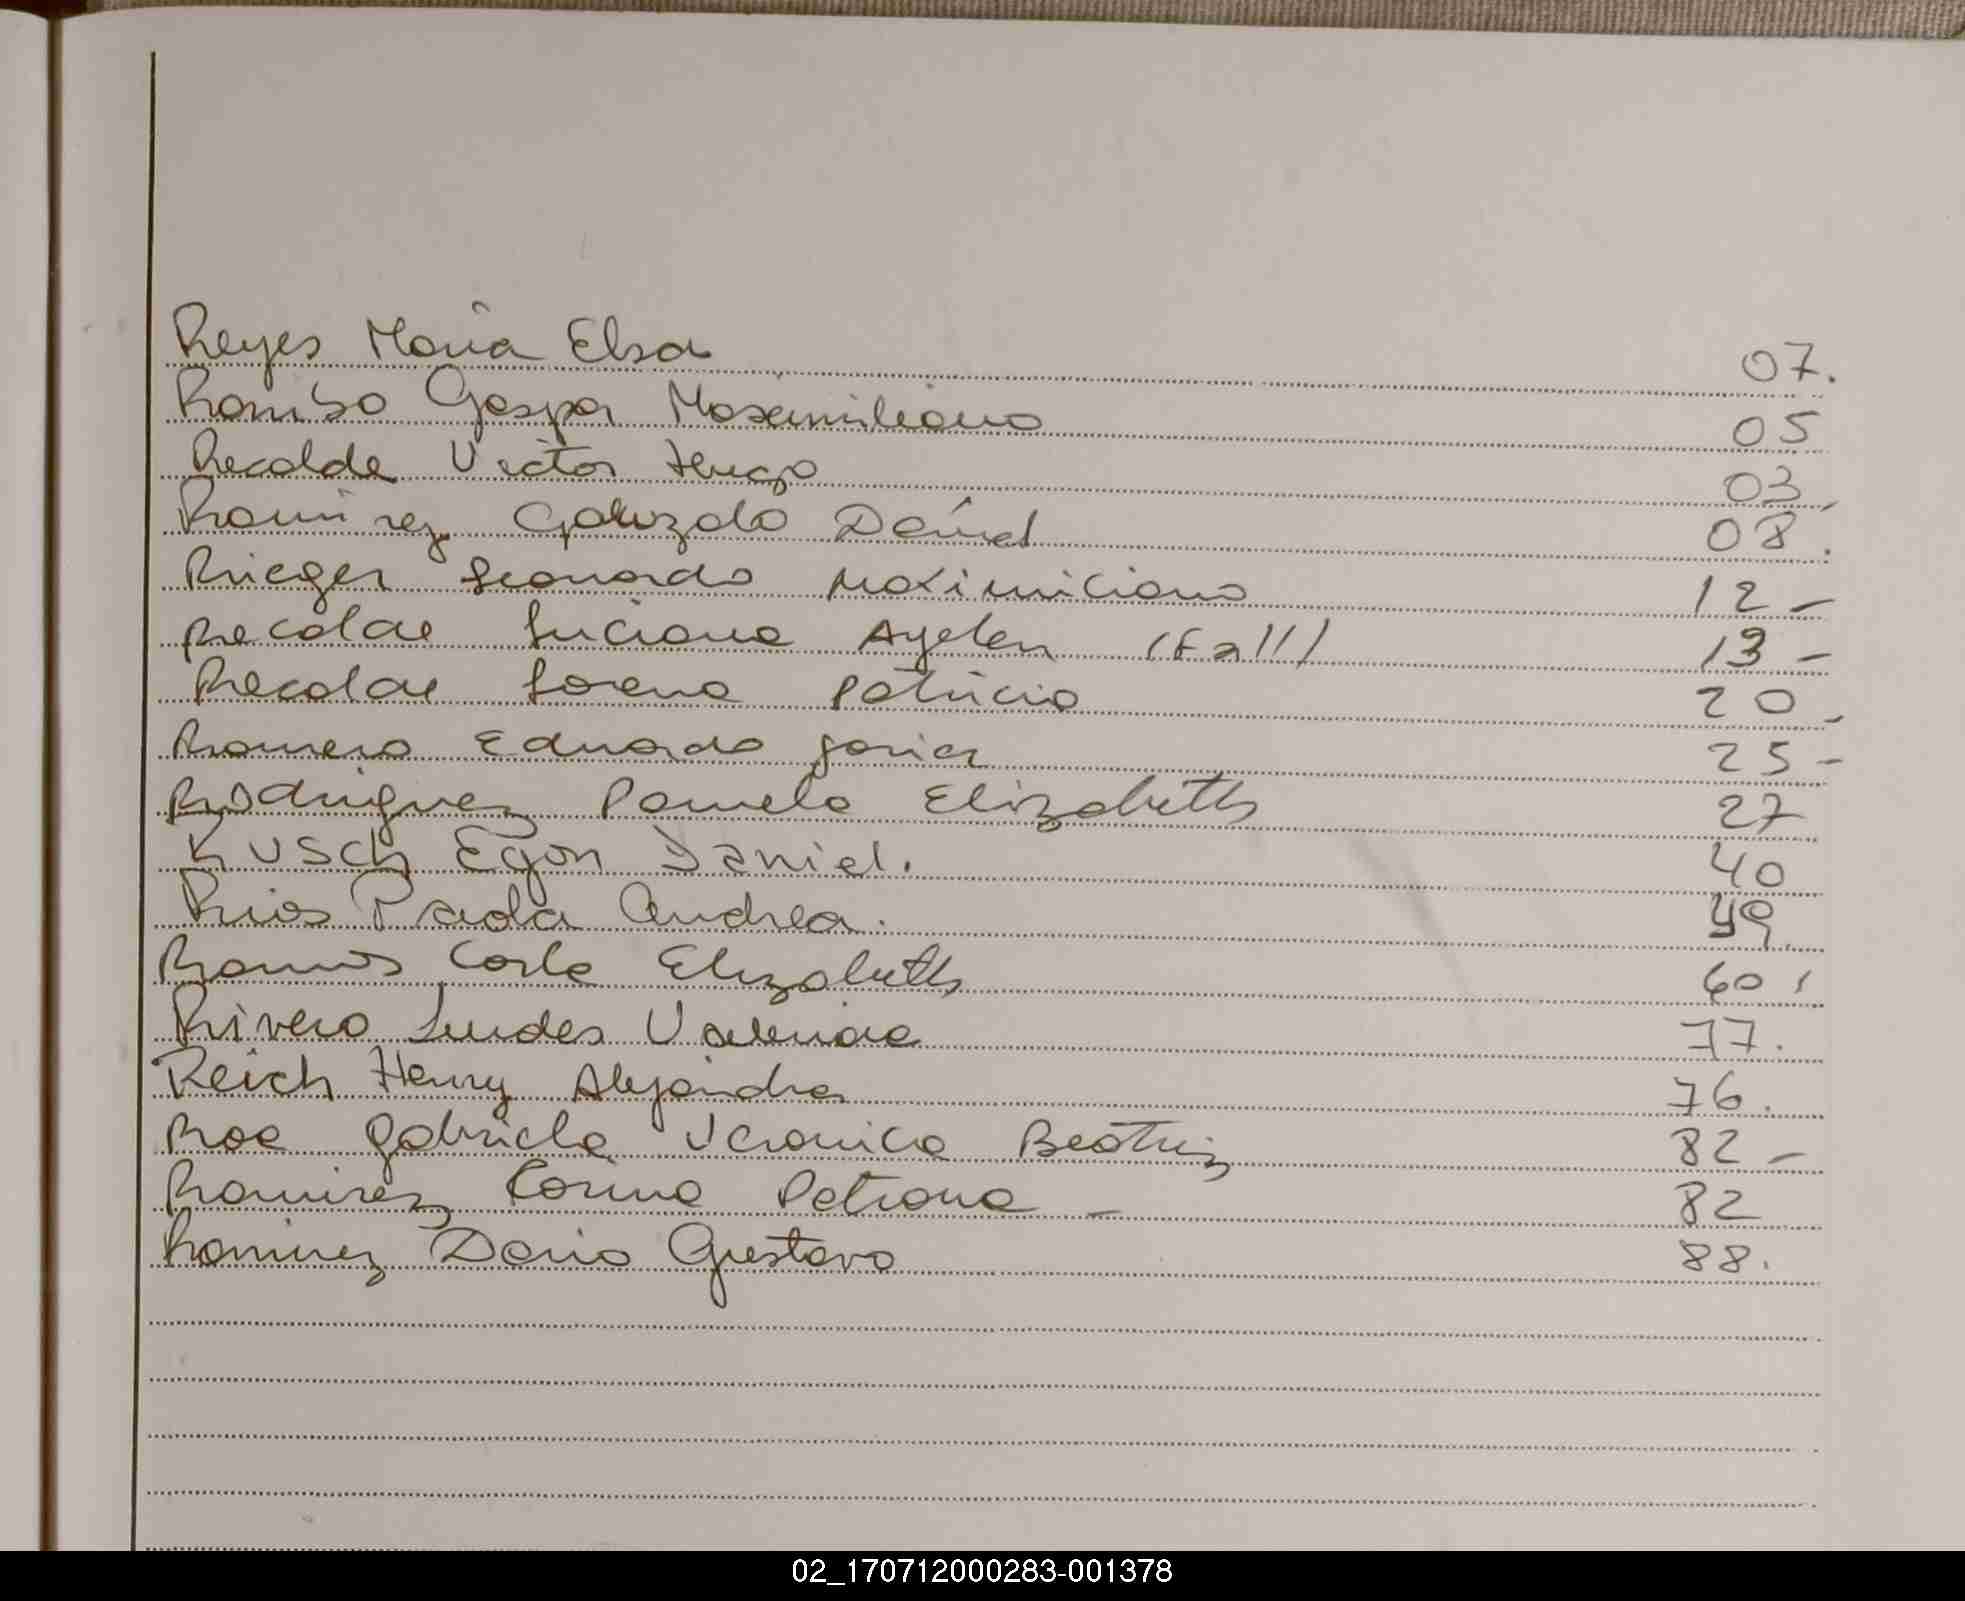 Reyes Maria Elsa 07.
Gaspar Maximiliano 05
Recalde Victor Hugo 03.
Ramirez Gonzalo Daniel 08.
Rieger Leonardo Maximiliano 12 -
Recalde Luciana Ayelen (Fall) 13 -
Recalde Lorena Patricia 20 -
Romero Eduardo Javier 25 -
Rodriguez Pamela Elizabeth 27
Rusch Egon Daniel. 40
Rios Paola Andrea. 49.
Ramos Carla Elizabeth 60.
Rivero Lurdes Valeria 77.
Reich Henry Alejandro 76.
Roa Gabriela Veronica Beatriz 82 -
Ramirez Corina Petrona - 82
Ramirez Dario Gustavo 88.
02_170712000283-001378